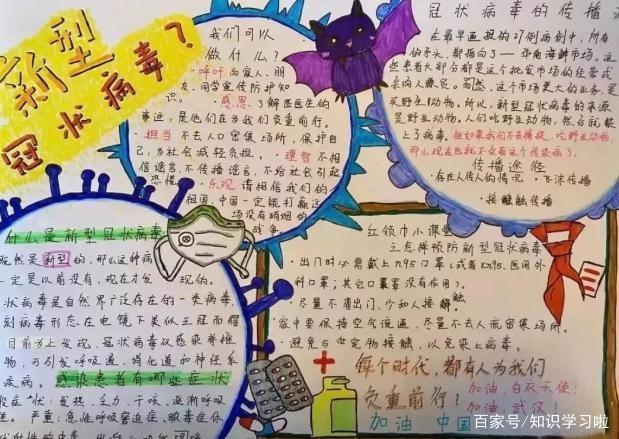 新型
冠状病毒?
我们可以
做什么?
·呼吁向家人、朋
友、同学宣传防护知
识。·感恩了解医医生的
事迹,是他们在为我们负重前行。
·担当不去人口密集场所,保护自
己,为社会减轻负担。·理智不相
信谣言,不传播谣言,不给社会引起
恐慌。·乐观请相信我们的
祖国,中国一定能打赢这
场没有硝烟的
战争。
冠状病毒的传播
在最早通报的27例病例中,所有
的矛头,都指向了——华南海鲜市场。这
些患者大部分都是这个批发市场的经营或
采购人员。而然,这个市场更大的业务,是
买野生动物,所以,新型冠状病毒的来源
是野生动物,人们吃野生动物,然后就感
上了病毒。但如果我们不去捕捉、吃野生动物,
那么现在也就不会有这个传染病了。
传播途径
·存在人传人的情况 ·飞沫传播
·接触传播
什么是新型冠状病毒
既然是新型的,那么这种病
一定是以前没有,现在才发现的。
状病毒是自然界广泛存在的一类病毒,
刻病毒形态在电镜下类似王冠而得
目前为止发现,冠状病毒仅感染脊椎
物,可引发呼吸道、消化道和神经系
疾病。感染患者有哪些症状
般症状:发热、乏力、干咳、逐渐呼吸
严重:急性呼吸窘迫症、脓毒症休
红领巾小课堂
三点牌预防新型冠状病毒
·出门时必需戴上n95口罩(或者Kn95、医用外
科口罩;其它口罩没有作用)。
·尽量不需出门,少和人接触
家中要保持空气流通,尽量不去人流密集场所。
·避免与宠物接触,以免染上病毒。
每个时代,都有人为我们
负重前行!
加油,白衣天使!
加油,武汉!
加油 中国
百家号/知识学习啦